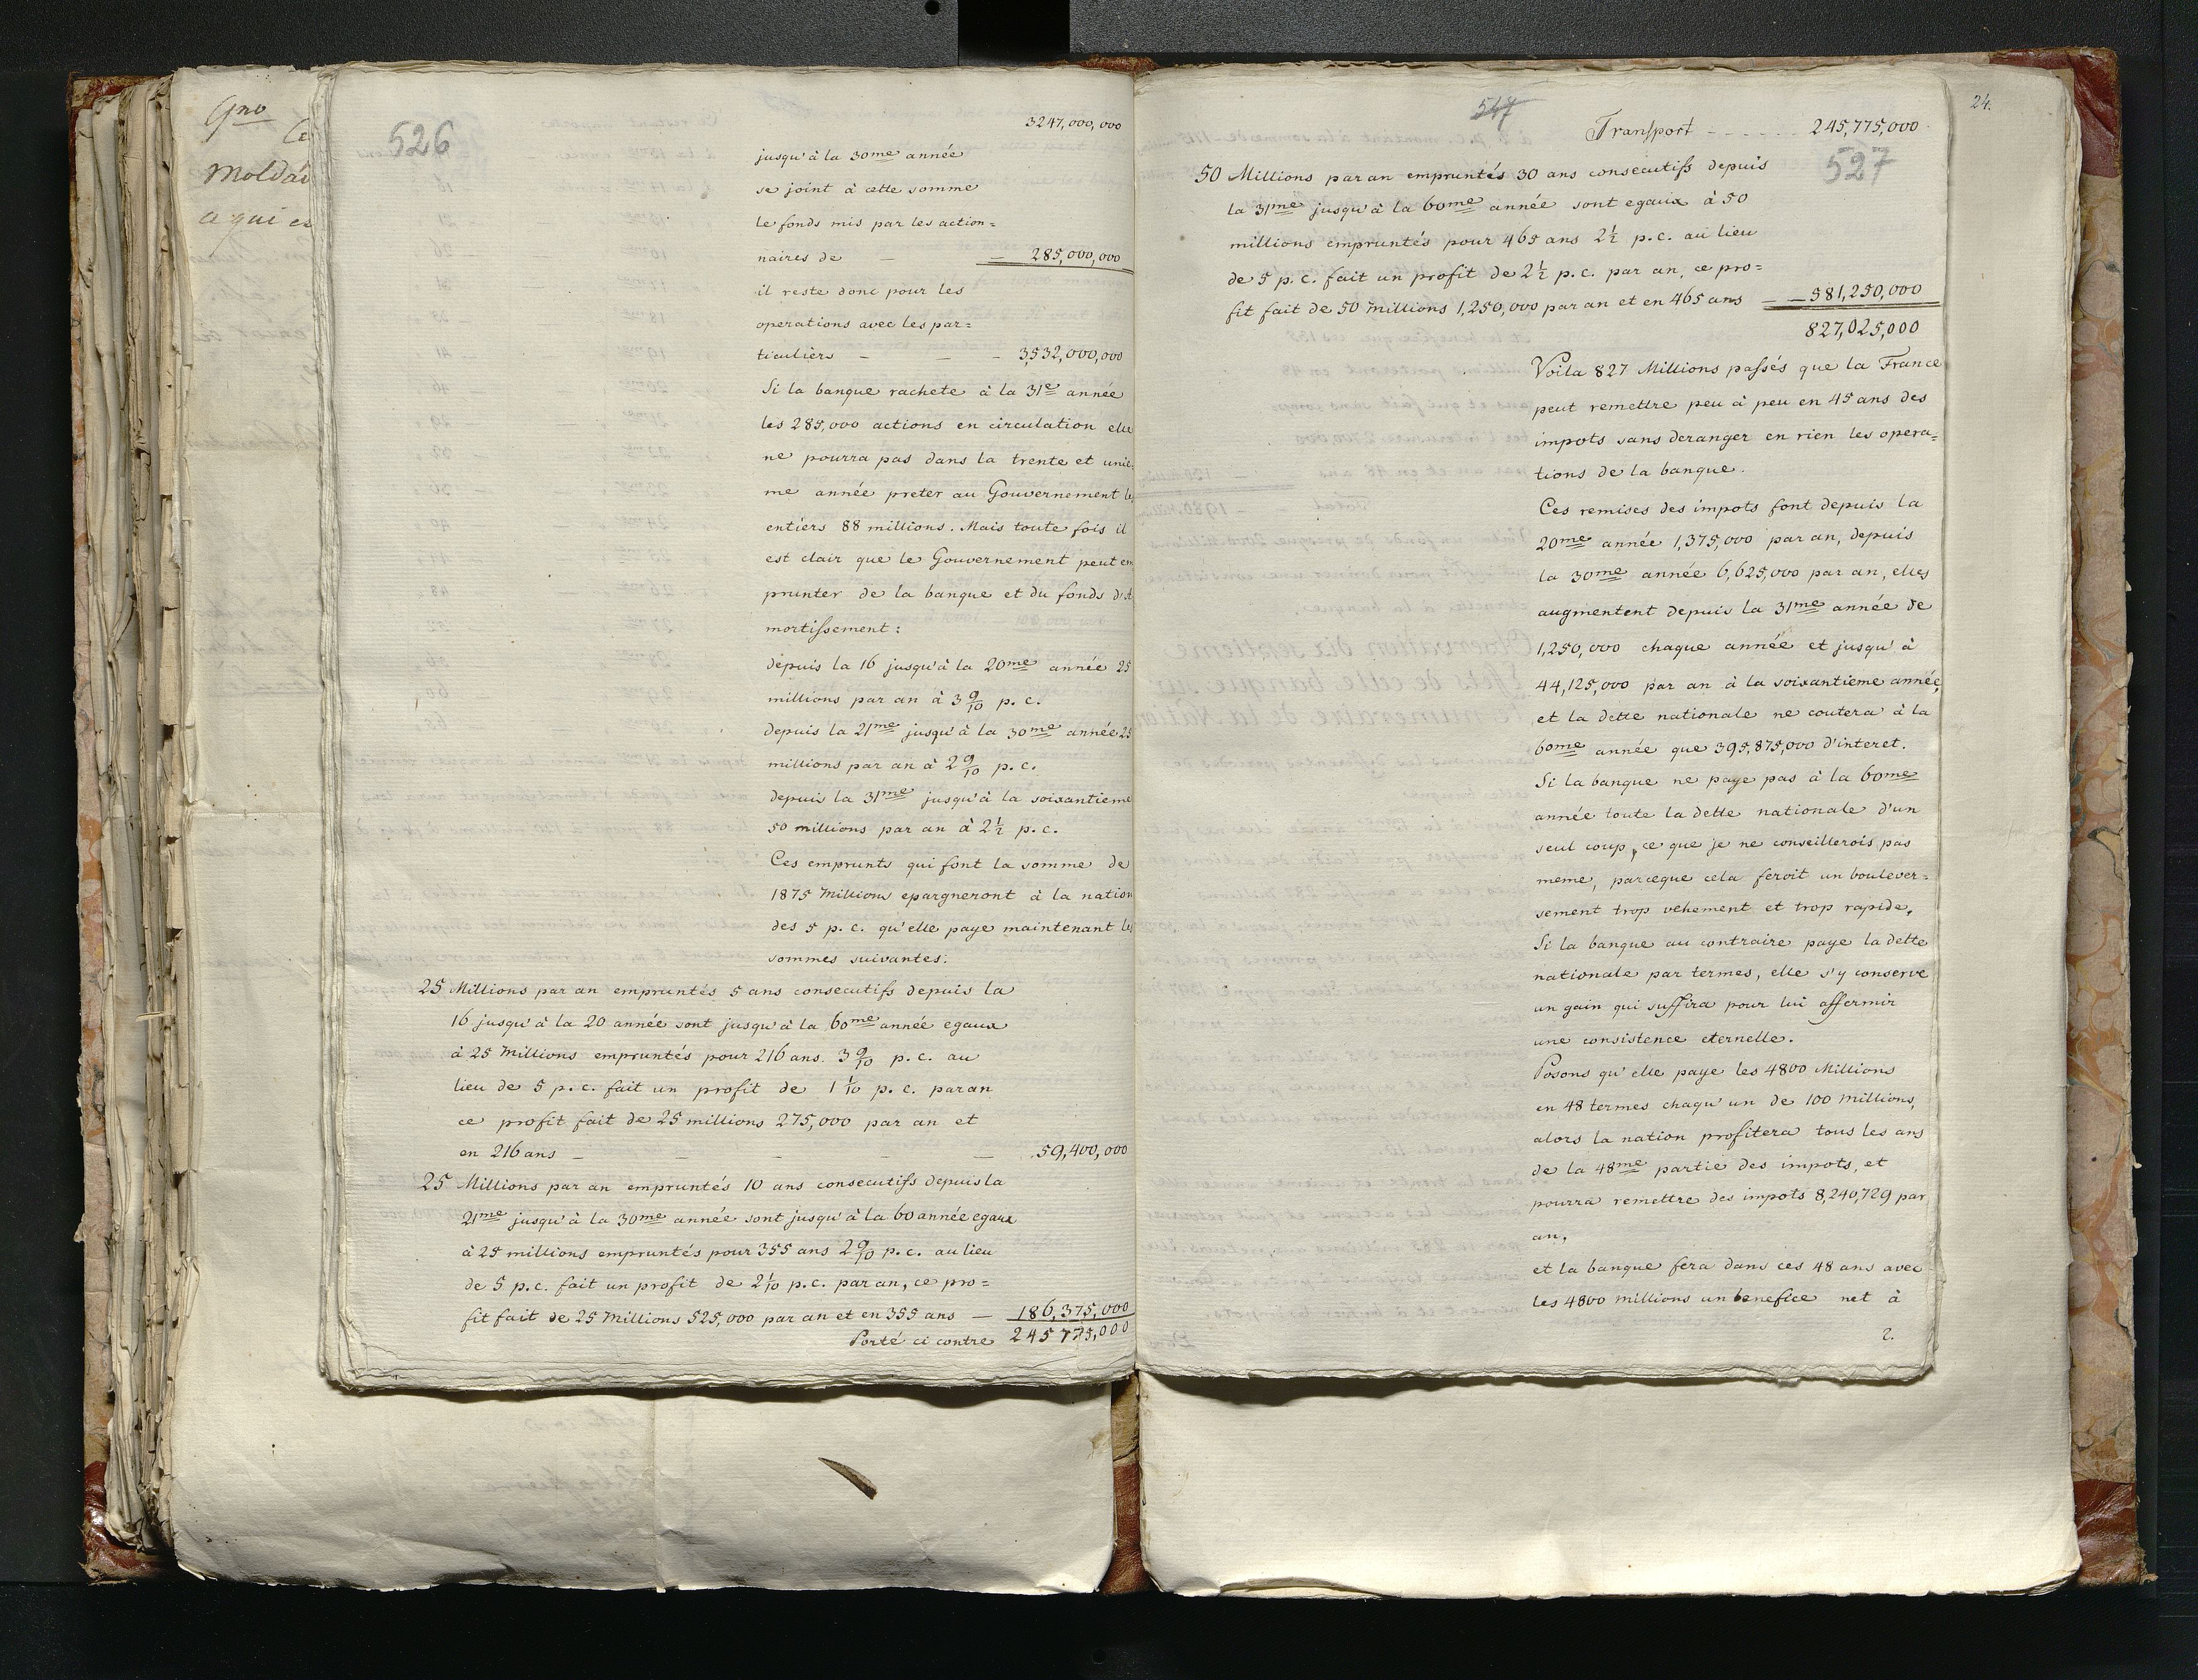 9no
Ce
Moldav
a qui es
526
3247,000,000
jusqu'à la 30me année
se joint à cette somme
le fonds mis par les action=
naires de — — 285,000,000
il reste donc pour les
operations avec les par=
ticuliers — — — 3,532,000,000
Si la banque rachete à la 31e année
les 285,000 actions en circulation elle
ne pourra pas dans la trente et unie=
me année preter au Gouvernement les
entiers 88 millions. Mais toute fois il
est clair que le Gouvernement peut em
prunter de la banque et du fonds d'a
mortissement:
depuis la 16 jusqu'à la 20me année 25
millions par an à 3 9/10 p. c.
depuis la 21me jusqu'à la 30me année 25
millions par an à 2 9/10 p. c.
depuis la 31me jusqu'à la soixantieme
50 millions par an à 2 1/2 p. c.
Ces emprunts qui font la somme de
1875 Millions epargneront à la nation
des 5 p. c. qu'elle paye maintenant les
sommes suivantes:
25 Millions par an empruntés 5 ans consecutifs depuis la
16 jusqu'à la 20 année sont jusqu'à la 60me année egaux
à 25 Millions empruntés pour 216 ans. 3 9/10 p. c. au
lieu de 5 p. c. fait un profit de 1 1/10 p. c. par an
ce profit fait de 25 millions 275,000 par an et
en 216 ans — — — — — 59,400,000
25 Millions par an empruntés 10 ans consecutifs depuis la
21me jusqu'à la 30me année sont jusqu'à la 60 année egaux
à 25 millions empruntés pour 355 ans 2 9/10 p. c. au lieu
de 5 p. c. fait un profit de 2 1/10 p. c. par an, ce pro=
fit fait de 25 Millions 525,000 par an et en 355 ans — 186,375,000
Porté ci contre 245 775,000
547
24.
Transport - - - - - - 245,775,000
527
50 Millions par an empruntés 30 ans consecutifs depuis
la 31me jusqu'à la 60me année sont egaux à 50
millions empruntés pour 465 ans 2 1/2 p. c. au lieu
de 5 p. c. fait un profit de 2 1/2 p. c. par an, ce pro=
fit fait de 50 Millions 1,250,000 par an et en 465 ans — 581,250,000
827,025,000
Voila 827 Millions passés que la France
peut remettre peu à peu en 45 ans des
impots sans deranger en rien les opera=
tions de la banque.
Ces remises des impots font depuis la
20me année 1,375,000 par an, depuis
la 30me année 6,625,000 par an, elles
augmentent depuis la 31me année de
1,250,000 chaque année et jusqu'à
44,125,000 par an à la soixantieme année,
et la dette nationale ne coutera à la
60me année que 395,875,000 d'interet.
Si la banque ne paye pas à la 60me
année toute la dette nationale d'un
seul coup, ce que je ne conseillerois pas
meme, parceque cela feroit un boulever=
sement trop vehement et trop rapide,
Si la banque au contraire paye la dette
nationale par termes, elle s'y conserve
un gain qui suffira pour lui affermir
une consistence eternelle.
Posons qu'elle paye les 4800 Millions
en 48 termes chaqu'un de 100 Millions,
alors la nation profitera tous les ans
de la 48me partie des impots, et
pourra remettre des impots 8,240,729 par
an,
et la banque fera dans ces 48 ans avec
les 4800 millions un benefice net à
2.